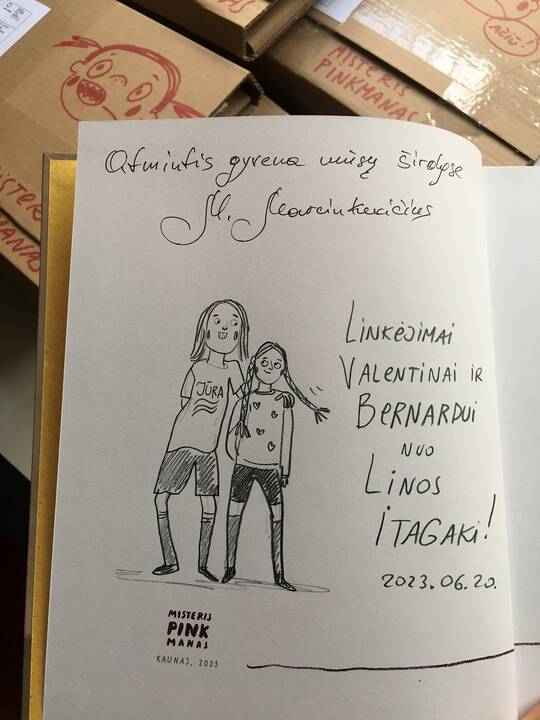 AČIŪ!
MISTERIS
PINKMANAS
MISTERIS
MANAS
Atmintis gyvena mūsų širdyse
M. Marcinkevičius
JŪRA
LINKĖJIMAI
VALENTINAI IR
BERNARDUI
NUO
LINOS
ITAGAKI!
2023.06.20.
MISTERIS
PINK
MANAS
KAUNAS, 2023